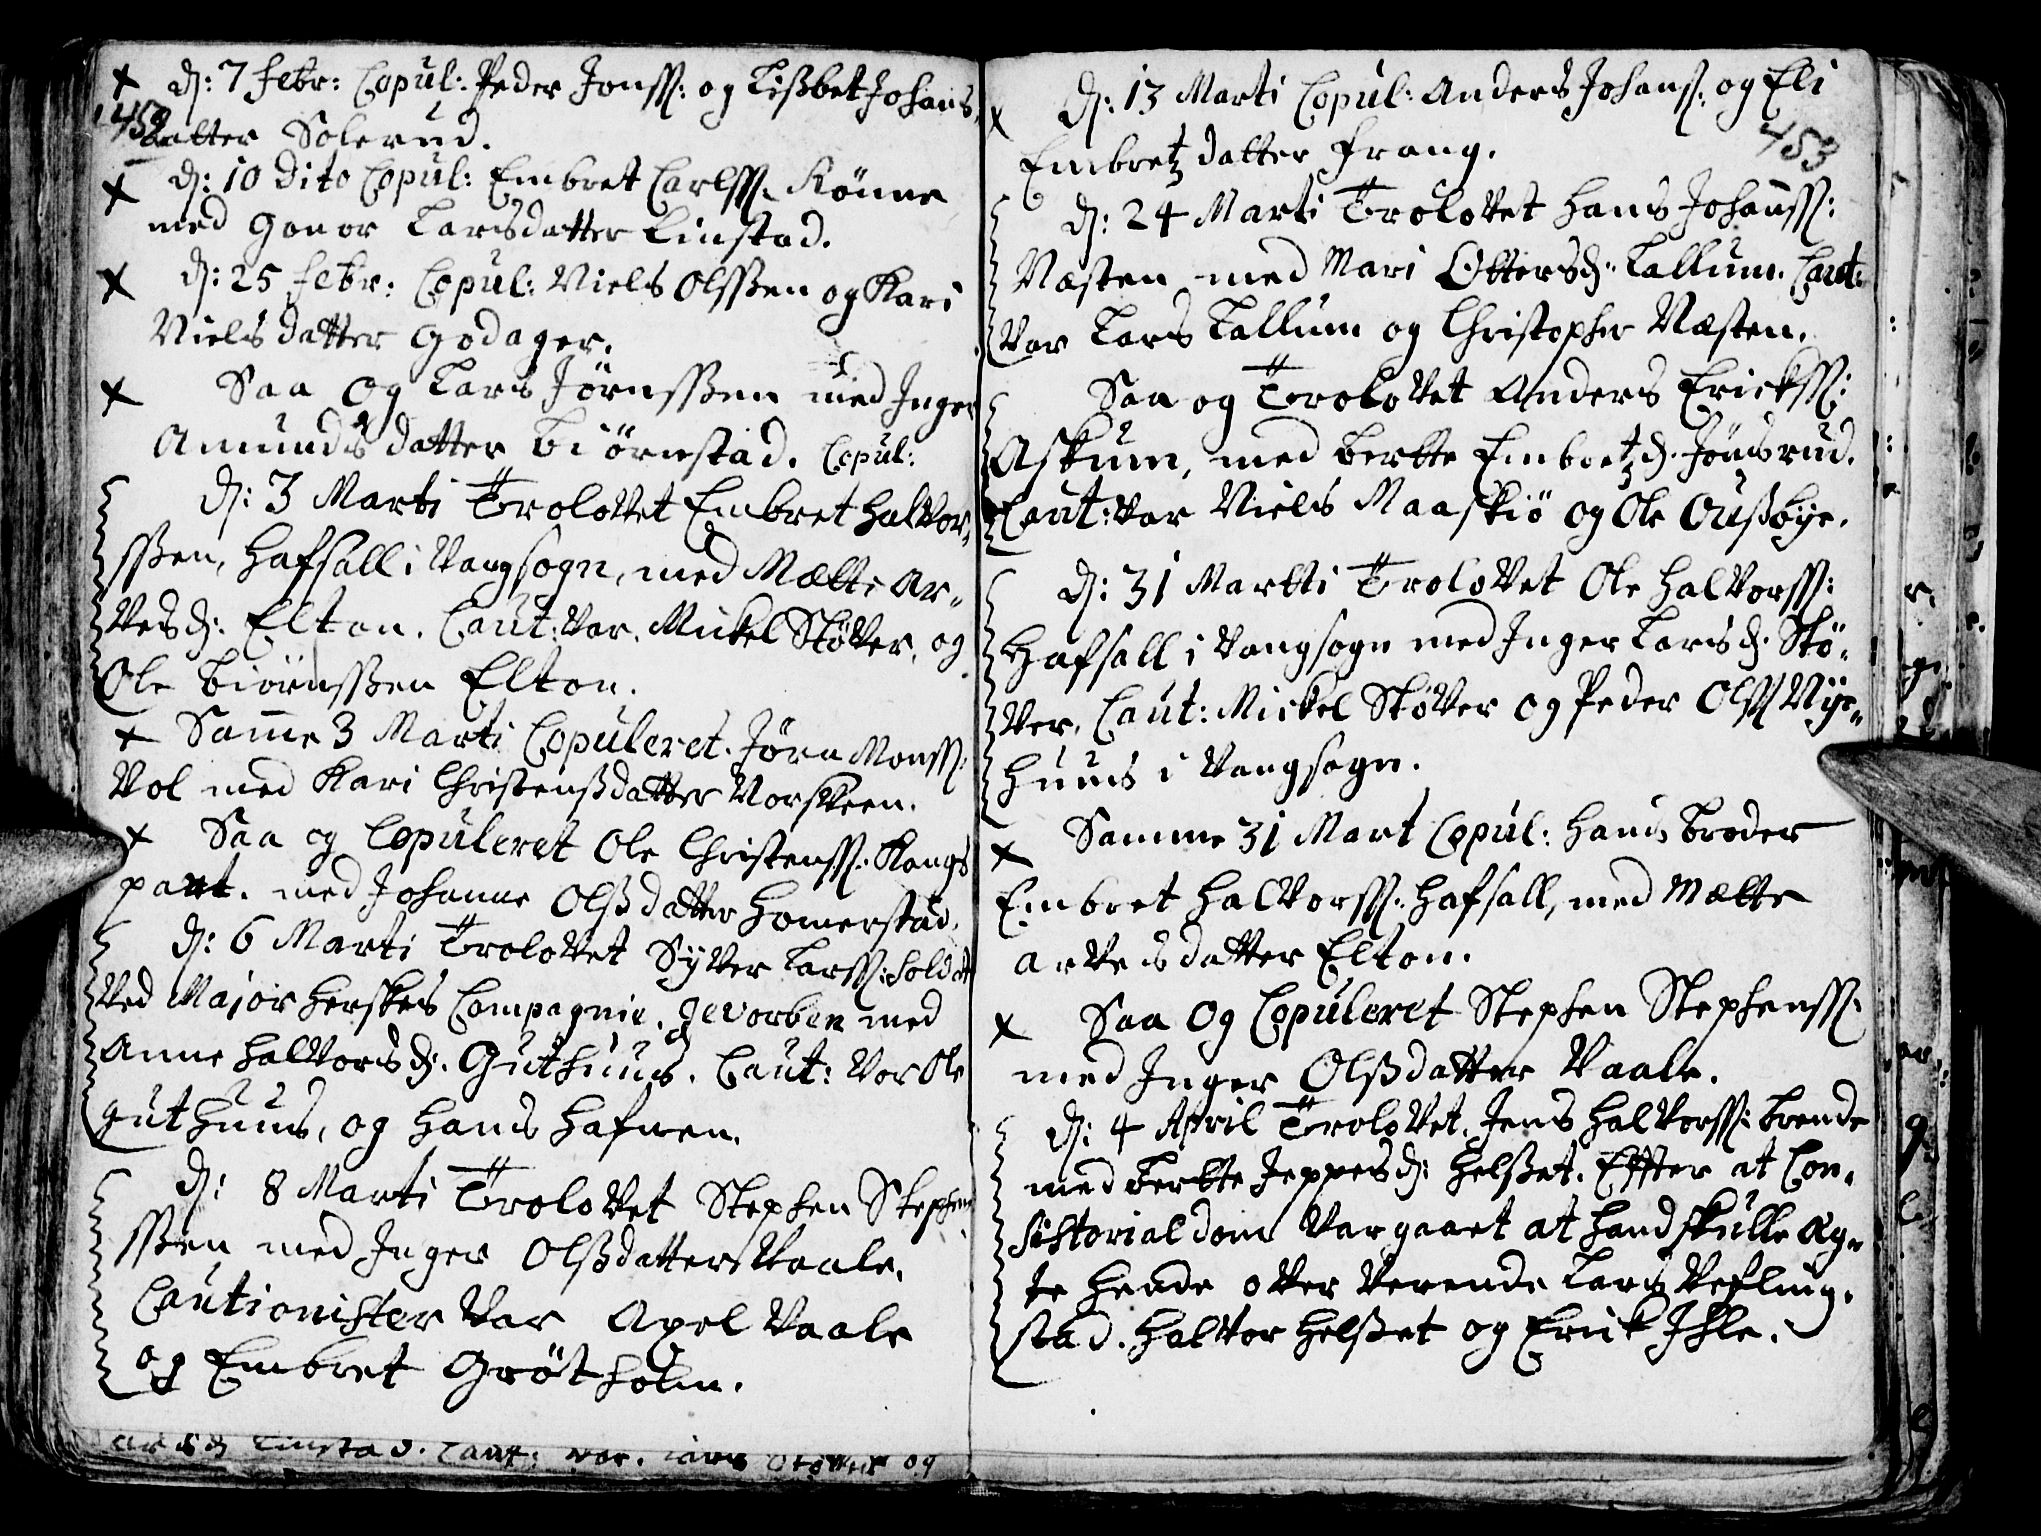 d: 7 Febr: Copul: Peder Jonss: og Lißbet Johans
452
datter Solerud.
d: 10 Dito Copul: Embret Carlss. Könne
med Gonor Larsdatter Linstad.
d: 25 Febr: Copul: Niels Olssen og Kari
Nielsdatter Godager.
Saa og Lars Jörnssen med Inger
Amundsdatter Biörnstad. Copul:
d: 3 Marti Trolovet Embret Halvor-
ssen, Hafsall i Vangsogn, med Mætte Ar-
vesd: Elton. Caut: var. Mickel Støver, og
Ole Biörnssen Elton.
Sam̄e 3 Marti Copuleret. Jörn Monss:
Vol med Kari Christenßdatter Vorskeen.
Saa og Copuleret Ole Christenss. Kongs
part. med Johanne Olßdatter Homerstad.
d: 6 Marti Trolovet Syver Larss: Soldat
ved Major Herskes Compagnie. gevorben med
Anne Halvorsd: Guthuus. Caut: Var Ole
Guthuus, og Hans Hafnen.
d: 8 Marti Trolovet Stephen Stephen
ssen med Inger Olßdatter Vaale.
Cautionister Var Axel Vaale
og Embret Grötholm.
Linstad. Caut: var. Lars Støver og
d: 13 Marti Copul: Anders Johans: og Eli
453
Embretz datter Frang.
d: 24 Marti Trolovet Hans Johanss:
Næsten med Mari Ottersd: Tallum. Caut:
Var Lars Tallum og Christopher Næsten.
Saa og Trolovet Anders Erickss:
Askum, med Berthe Embretzd. Jönsrud.
Caut: var Niels Maaskiö og Ole Oußbye.
d: 31 Martti Trolovet Ole Halvorss:
Hafsall i Vangsogn med Inger Larsd: Stö-
ver. Caut: Mickel Støver og Peder Olss Nye-
huus i Vangsogn.
Samme 31 Mart Copul: Hans Broder
Embret Halvorss. Hafsall, med Mætte
Arvesdatter Elton.
Saa og Copuleret Stephen Stephenss.
med Inger Olßdatter Vaale.
d: 4 April Trolovet. Jens Halvorss: Brende
med Berthe Jeppesd: Helßet. Effter at Con-
sistorial dom Var gaaet at hand skulle Æg-
te Hende over Verende Lars Vefling-
stad. Halvor Helßet og Erick Ihle.